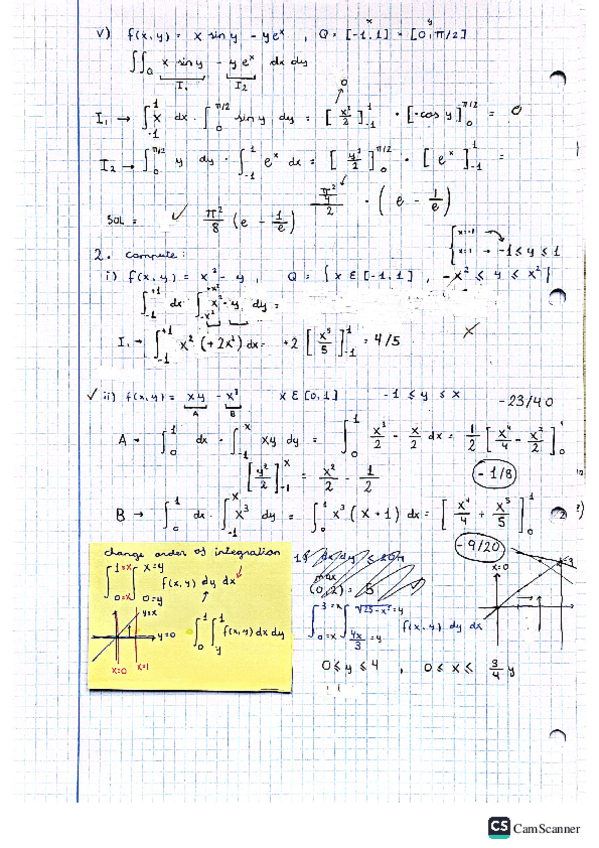 x y
v) f(x,y) = x sin y - ye^x , Q = [-1,1] × [0,π/2]
∫∫_Q x sin y - y e^x dx dy
I₁ I₂
0
I₁ → ∫_{-1}^{1} x dx · ∫_0^{π/2} sin y dy = [x²/2]_{-1}^{1} · [-cos y]_0^{π/2} = 0
I₂ → ∫_0^{π/2} y dy · ∫_{-1}^{1} e^x dx = [y²/2]_0^{π/2} · [e^x]_{-1}^{1} =
(π²/4)/2 · (e - 1/e)
SOL = ✓ π²/8 (e - 1/e)
x=-1
x=1 → -1 ≤ y ≤ 1
2. compute:
i) f(x,y) = x² - y , Q = { x ∈ [-1,1] , -x² ≤ y ≤ x² }
∫_{-1}^{+1} dx ∫_{-x²}^{+x²} x² - y dy =
I₁ → ∫_{-1}^{+1} x² (+2x²) dx = +2 [x⁵/5]_{-1}^{1} = 4/5 ×
✓ ii) f(x,y) = xy - x³ x ∈ [0,1] -1 ≤ y ≤ x -23/40
A B
A → ∫_0^1 dx · ∫_{-1}^x xy dy = ∫_0^1 x³/2 - x/2 dx = 1/2 [x⁴/4 - x²/2]_0^1
[y²/2]_{-1}^x = x²/2 - 1/2 -1/8
B → ∫_0^1 dx · ∫_{-1}^x x³ dy = ∫_0^1 x³ (x+1) dx = [x⁴/4 + x⁵/5]_0^1
-9/20
change order of integration
∫_{0=x}^{1=x} ∫_{0=y}^{x=y} f(x,y) dy dx
y=x
y=0
x=0 x=1
∫_0^1 ∫_y^1 f(x,y) dx dy
max
(0,2) = 5
x=0
∫_{0=x}^{3=x} ∫_{4x/3=y}^{√25-x²=y} f(x,y) dy dx
0 ≤ y ≤ 4 , 0 ≤ x ≤ 3/4 y
CS CamScanner